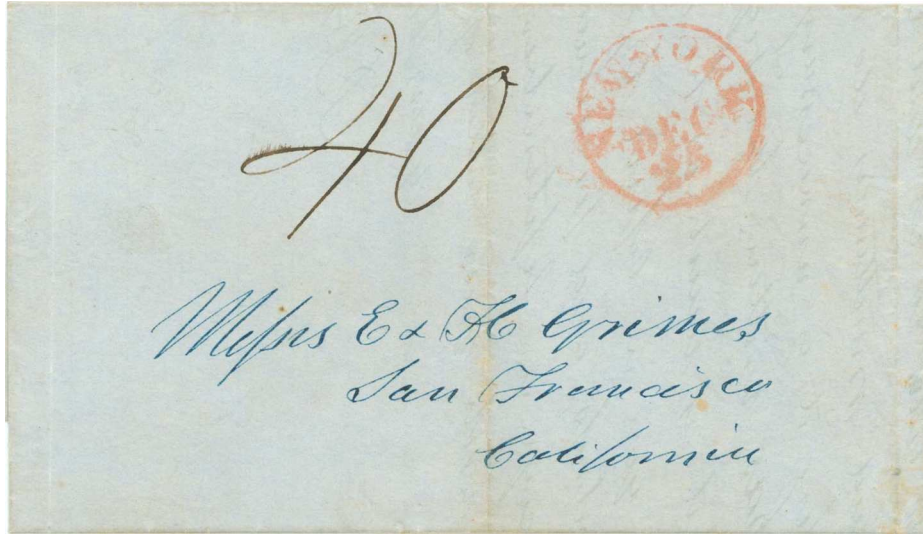 40
NEW YORK
DEC
25
Messrs E & H Grimes
San Francisco
California